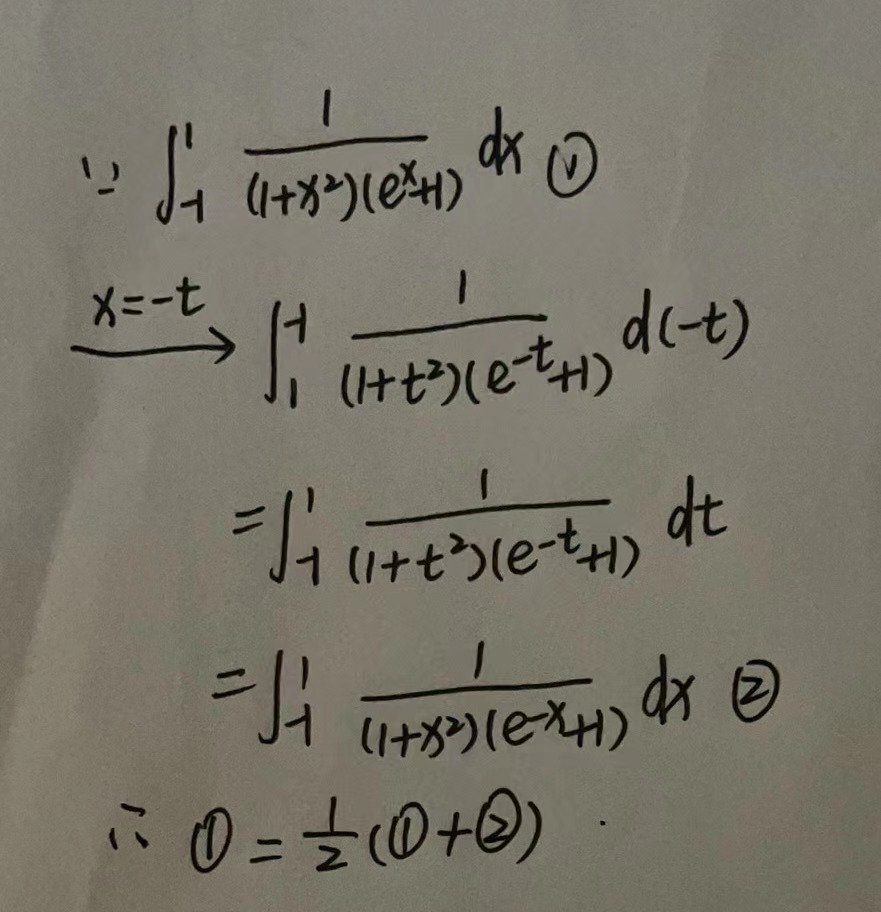 ∵ ∫₋₁¹ 1/((1+x²)(eˣ+1)) dx ①
x=-t → ∫₁⁻¹ 1/((1+t²)(e⁻ᵗ+1)) d(-t)
=∫₋₁¹ 1/((1+t²)(e⁻ᵗ+1)) dt
=∫₋₁¹ 1/((1+x²)(e⁻ˣ+1)) dx ②
∴ ① = 1/2 (①+②)